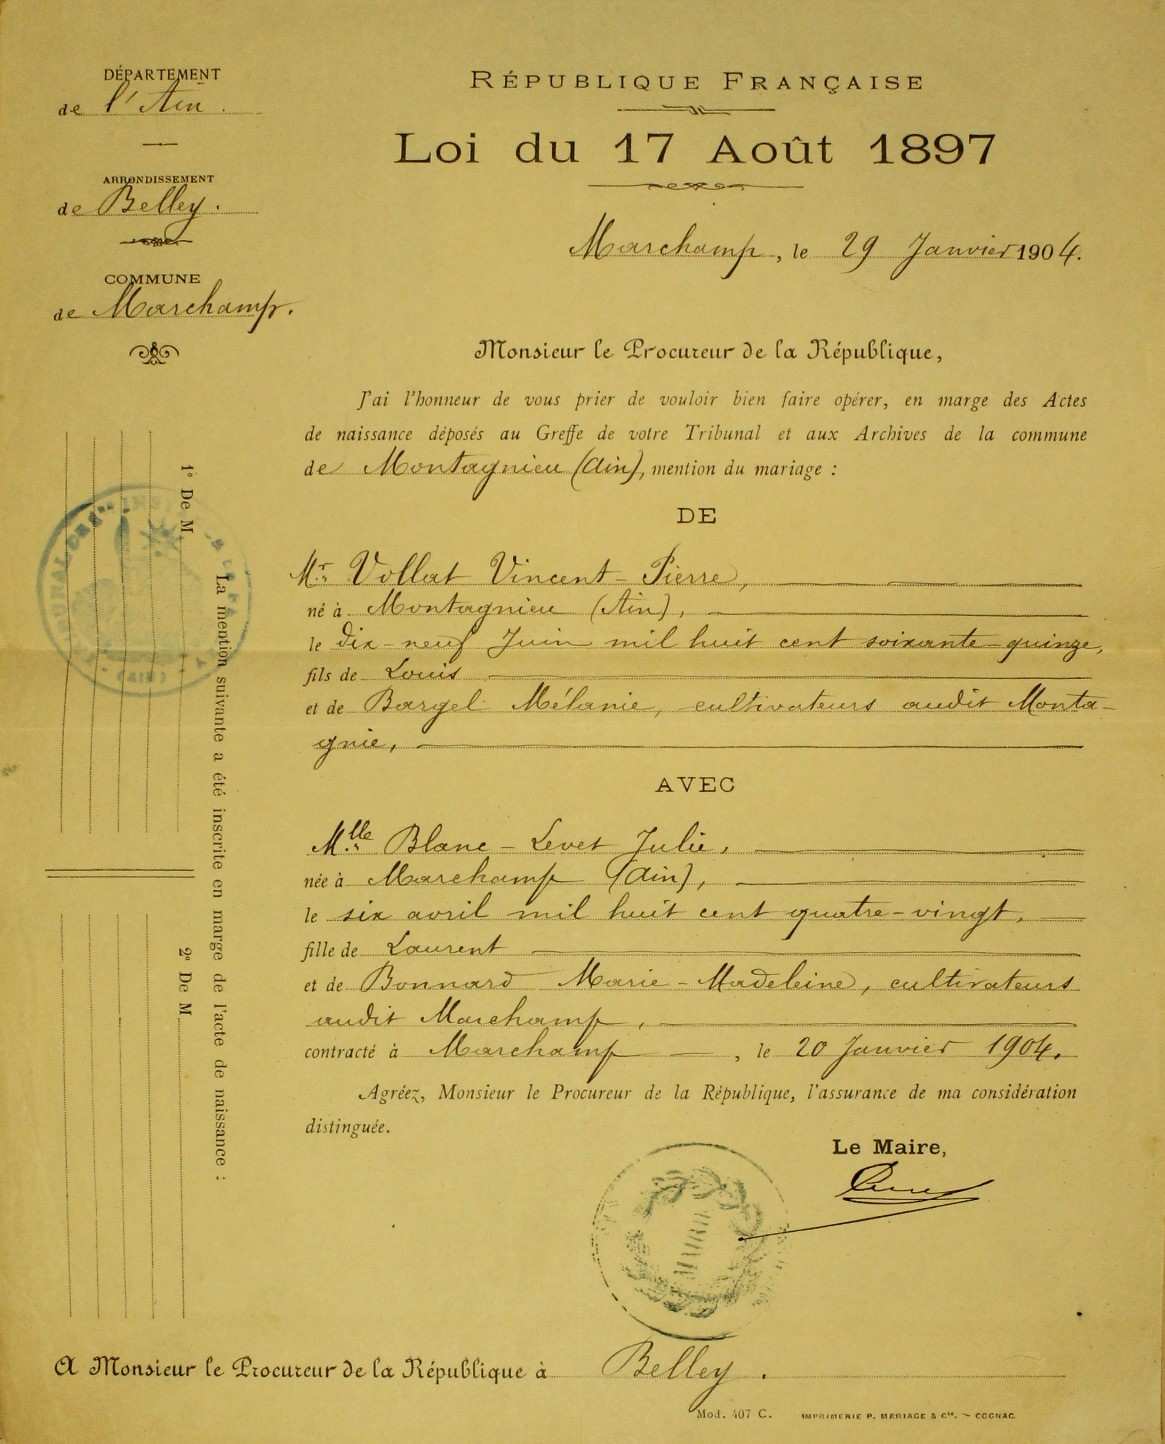 DÉPARTEMENT
de l'Ain.
ARRONDISSEMENT
de Belley.
COMMUNE
de Marchamp.
RÉPUBLIQUE FRANÇAISE
LOI DU 17 AOÛT 1897
Marchamp, le 29 Janvier 1904.
Monsieur le Procureur de la République,
J'ai l'honneur de vous prier de vouloir bien faire opérer, en marge des Actes
de naissance déposés au Greffe de votre Tribunal et aux Archives de la commune
de Montagnieu (Ain), mention du mariage :
DE
Mr. Vollat Vincent-Pierre,
né à Montagnieu (Ain),
le dix-neuf Juin mil huit cent soixante-quinze,
fils de Louis
et de Bargel Mélanie, cultivateurs audit Monta-
gnie,
AVEC
Mlle Blanc-Levet Julie,
née à Marchamp (Ain),
le six avril mil huit cent quatre-vingt,
fille de Laurent
et de Bonnard Marie-Madeleine, cultivateurs
audit Marchamp,
contracté à Marchamp — , le 20 Janvier 1904.
Agréez, Monsieur le Procureur de la République, l'assurance de ma considération
distinguée.
Le Maire,
MAIRIE
La mention suivante a été inscrite en marge de l'acte de naissance :
1° De M
2° De M
(AIN)
A Monsieur le Procureur de la République à Belley.
Mod. 407 C.
IMPRIMERIE P. MARIAGE & Cie. — COGNAC